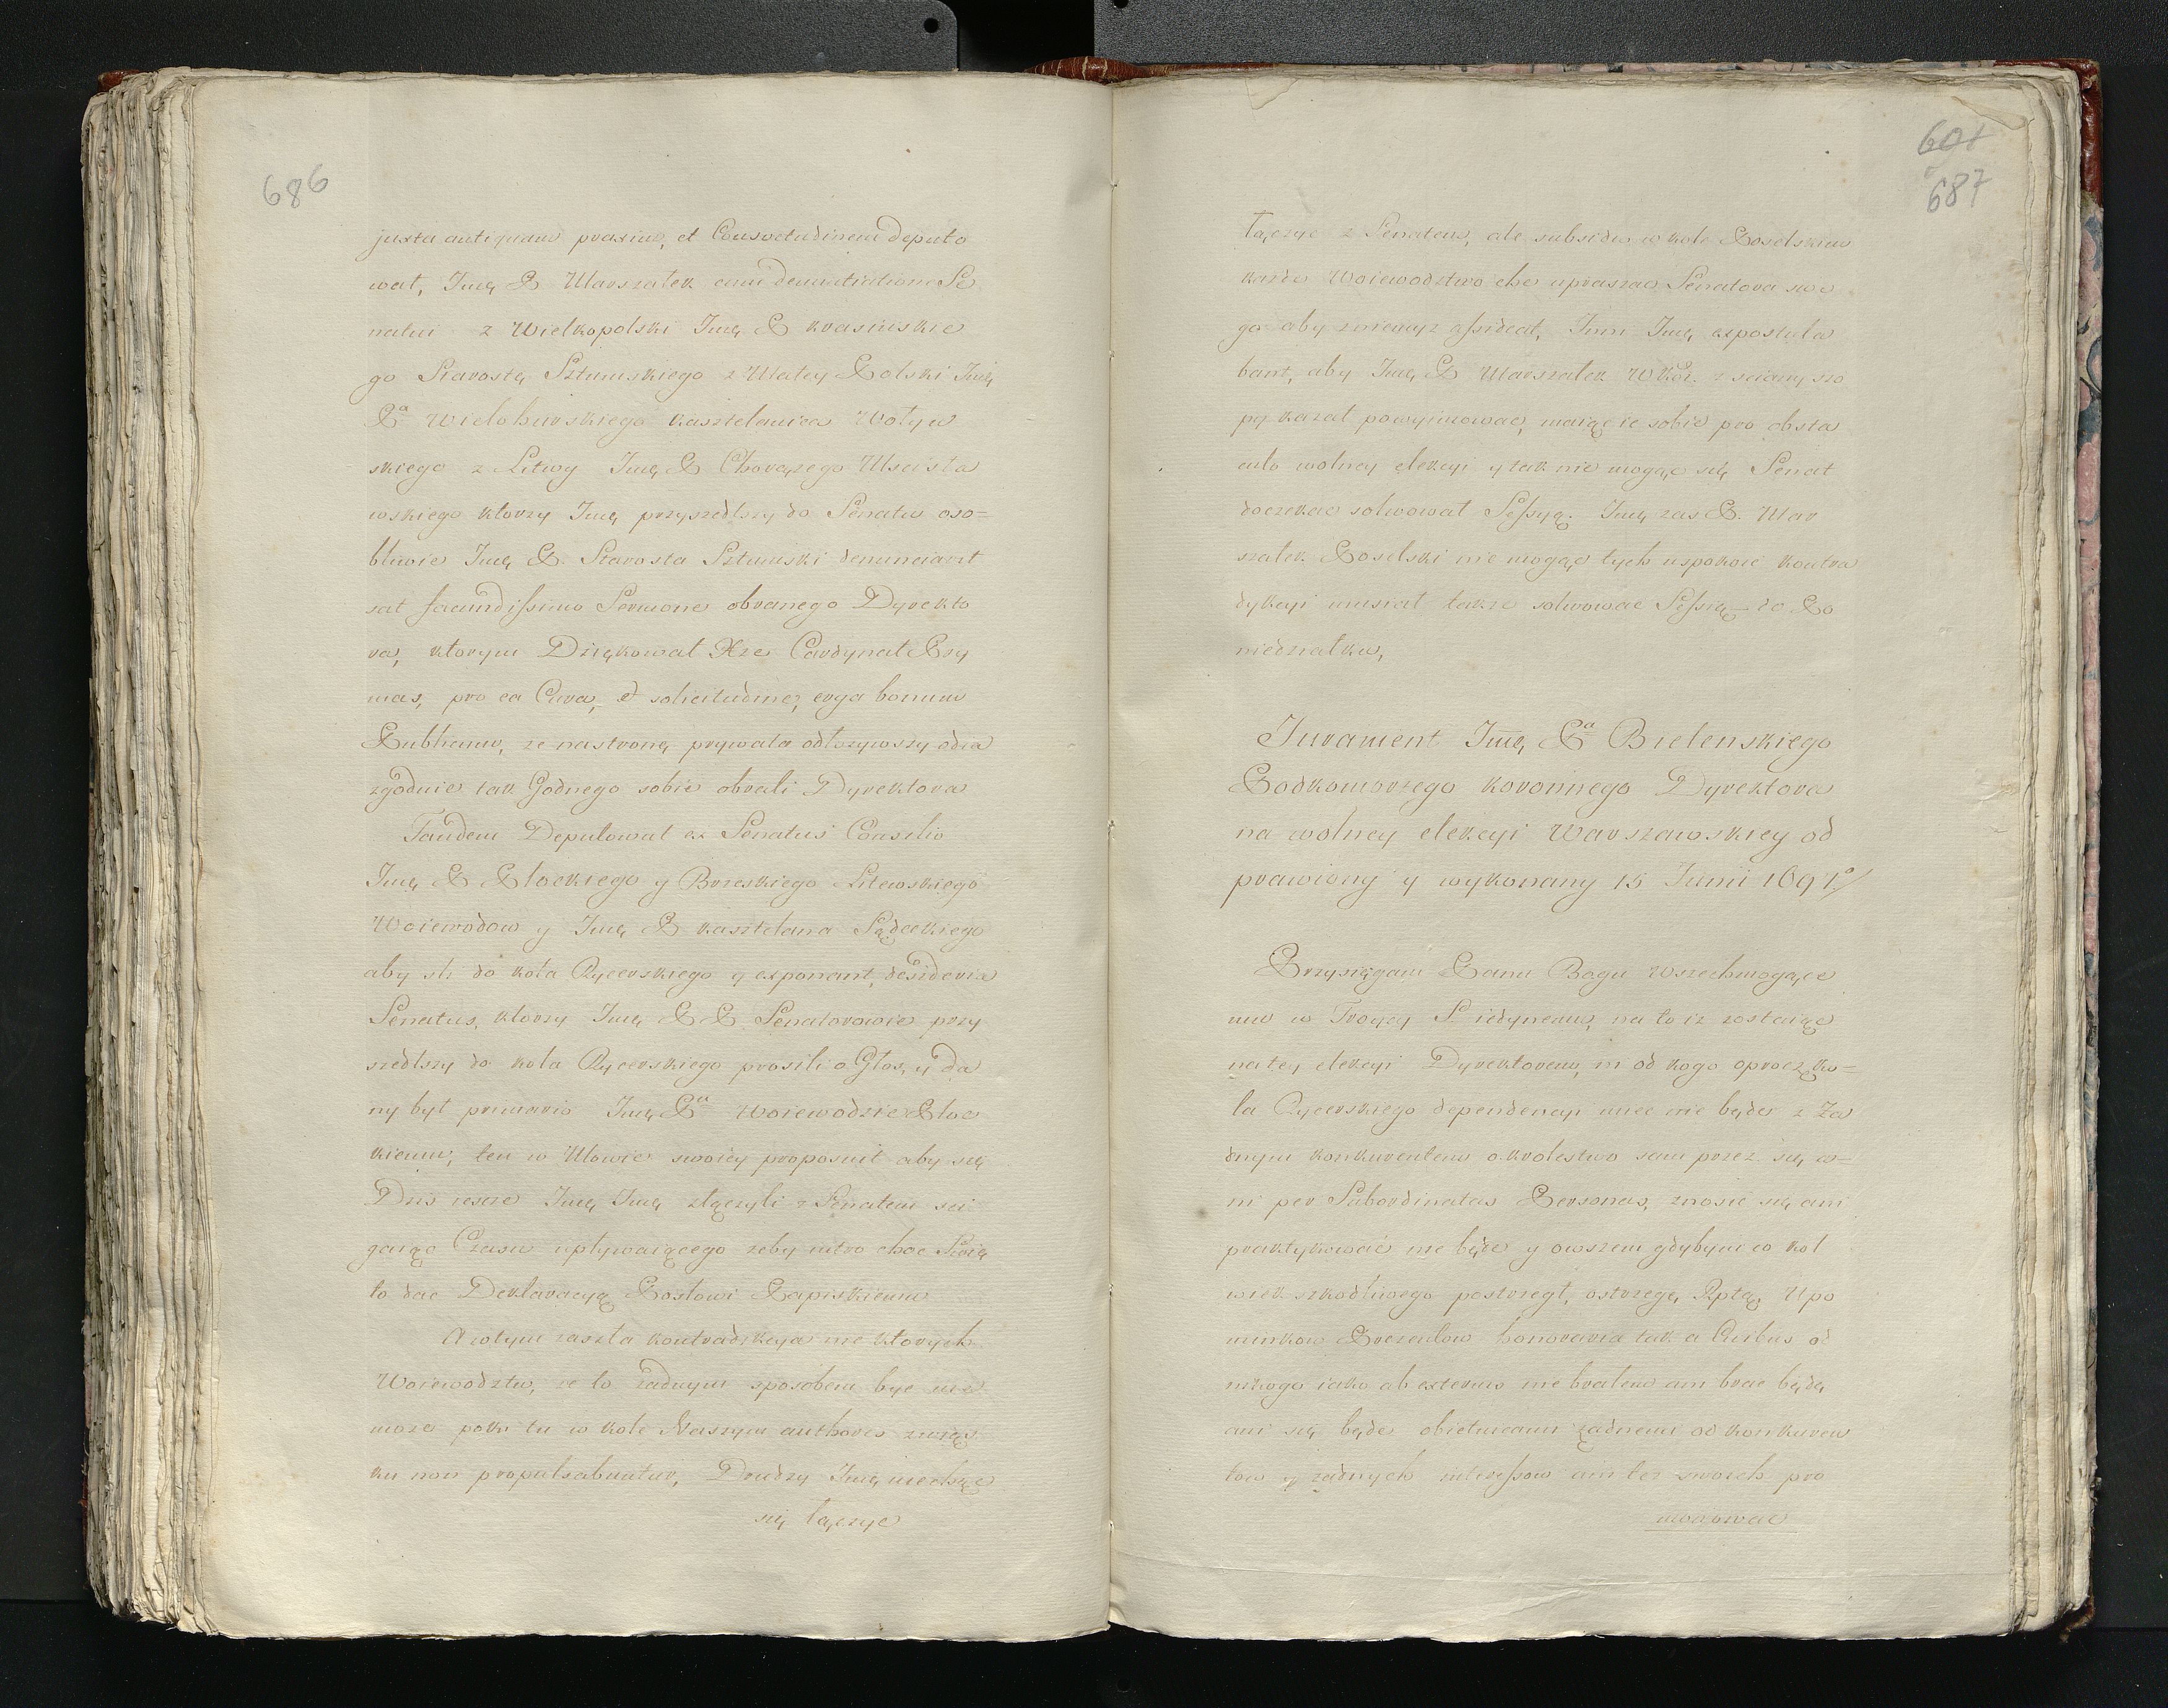 686
juxta antiquam praxim, et Consvetudinem deputo
wał, Jmę P. Marszałek cum denuntiatione Se
natui z Wielkopolski Jmę P. Krasinskie
go Starostę Sztumskiego z Małey Polski Jmę
Pa Wielohurskiego kasztelanica Wołyn
skiego z Litwy Jmę P. Chorążego Mscisła
wskiego ktorzy Jmę przyszedłszy do Senatu oso=
bliwie Jmę P. Starosta Sztumski denunciavit
sat facundissimo Sermone obranego Dyrekto
ra, ktorym Dziękował Xże Cardynał Pry
mas, pro ea Cura, et solicitudine, erga bonum
Publicum, że nastronę prywata odłożywszy odia
zgodnie tak Godnego sobie obrali Dyrektora
Tandem Deputował ex Senatus Consilio
Jmę P. Płockiego y Brzeskiego Litewskiego
Woiewodow y Jmę P. kasztelana Sądeckiego
aby szli do koła Rycerskiego y exponant, desideria
Senatus, ktorzy Jmę P. P. Senatorowie przy
szedłszy do koła Rycerskiego prosili o Głos, y da
ny był primario Jmę Pa Woiewodzie Płoc
kiemu, ten w Mowie swoiey proposuit aby się
Dzis ieszcze Jmę Jmę złączyli z Senatem sci
gaiąc Czasu upływaiącego żeby iutro choc Świę
to dac Deklaracyą Posłowi Papiskiemu
A wtym zaszła kontradykcya nie ktorych
Woiewodztw, że to żadnym sposobem byc nie
może poki tu w kole Naszym authores związ
ku non propulsabuntur, Drudzy Jmę niechcąc
się łączyc

601
687
łączyc z Senatem, ale subsidu w kole Poselskim
każde Woiewodztwo chc upraszac Senatora swe
go aby zniemi assideat, Inni Jmę expostula
bant, aby Jmę P. Marszałek WKor. z sciany szo
py kazał powyimowac, maiąc ie sobie pro obsta
culo wolney elekcyi y tak nie mogąc się Senat
doczekac solwował Sessyą. Jmę zas P. Mar
szałek Poselski nie mogąc tych uspokoic kontra
dykcyi musiał także solwowac Sessią do Po
niedziałku,
Jurament Jmę Pa Bielenskiego
Podkomorzego koronnego Dyrektora
na wolney elekcyi Warszawskiey od
prawiony y wykonany 15 Junii 1697o/
Przysięgam Panu Bogu Wszechmogące
mu w Troycy S. iedynemu, na to iż zostaiąc
na tey elekcyi Dyrektorem, ni od kogo oprocz ko=
ła Rycerskiego dependencyi miec nie będę z Ża
dnym konkurentem o krolestwo sam przez się a=
ni per Subordinatas Personas, znosic się ani
praktykować nie będę y owszem gdybym co kol
wiek szkodliwego postrzegł, ostrzegę Rptą. Upo
minkow Prezentow honoraria tak a Civibus od
nikogo iako ab externo nie brałem ani brac będę
ani się będę obietnicami żadnemi od konkuren
tow y żadnych interessow ani też swoich pro
mowowac